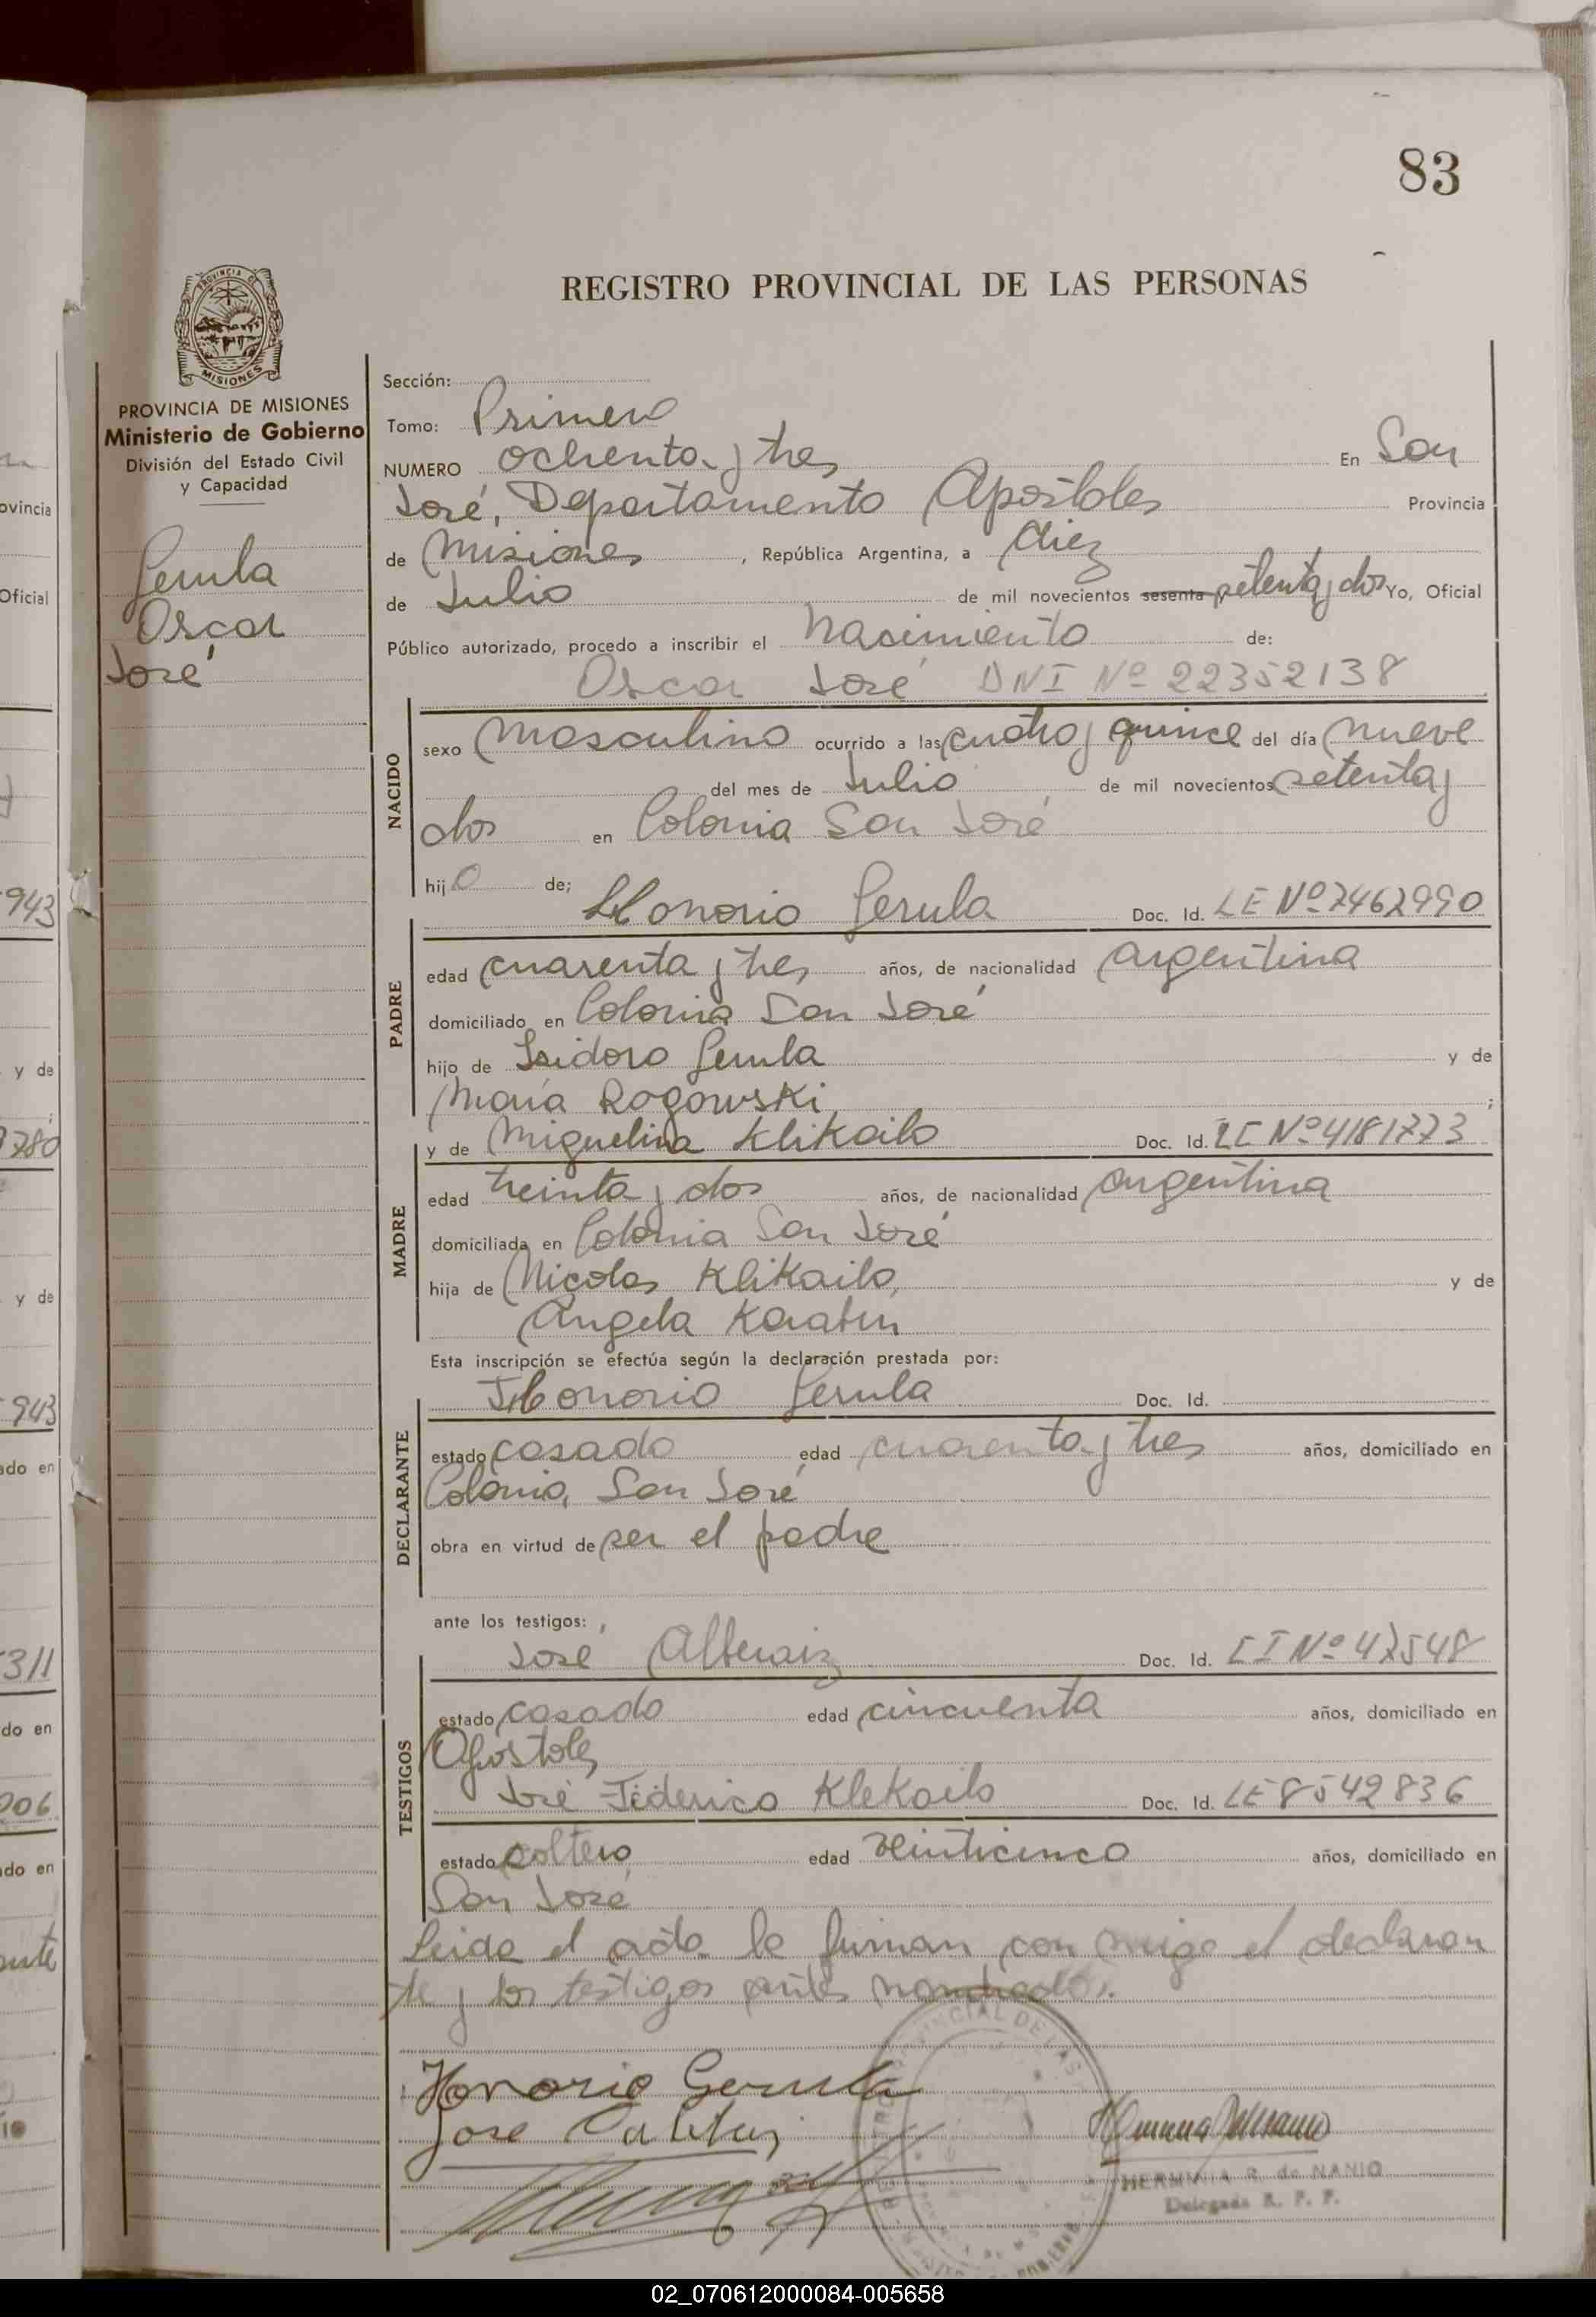 83
REGISTRO PROVINCIAL DE LAS PERSONAS
PROVINCIA DE MISIONES
Ministerio de Gobierno
División del Estado Civil
y Capacidad
Gerula
Oscar
José
Sección:
Tomo: Primero
NUMERO ochenta y tres En San
José, Departamento Apóstoles Provincia
de Misiones, República Argentina, a diez
de Julio de mil novecientos sesenta setenta y dos Yo, Oficial
Público autorizado, procedo a inscribir el Nacimiento de:
Oscar José DNI Nº 22352138
NACIDO
sexo Masculino ocurrido a las cuatro y quince del día nueve
del mes de Julio de mil novecientos setenta y
dos en Colonia San José
hijo de; Honorio Gerula Doc. Id. LE Nº 7462990
PADRE
edad cuarenta y tres años, de nacionalidad argentina
domiciliado en Colonia San José
hijo de Isidoro Gerula y de
María Rogowski;
y de Miguelina Klikailo Doc. Id. LC Nº 4181773
MADRE
edad treinta y dos años, de nacionalidad argentina
domiciliada en Colonia San José
hija de Nicolas Klikailo, y de
Angela
Esta inscripción se efectúa según la declaración prestada por:
Honorio Gerula Doc. Id.
DECLARANTE
estado casado edad cuarenta y tres años, domiciliado en
Colonia San José
obra en virtud de ser el padre
ante los testigos:
José Doc. Id. CI Nº 47548
TESTIGOS
estado casado edad cincuenta años, domiciliado en
Apóstoles
José Federico Klekailo Doc. Id. LE 8542836
estado soltero edad veinticinco años, domiciliado en
San José
Leida el acta la firman con migo el declaran
te y los testigos antes nombrados.
Honorio Gerula
Jose
HERMINIA R. de NANIO
Delegada R. P. P.
02_070612000084-005658